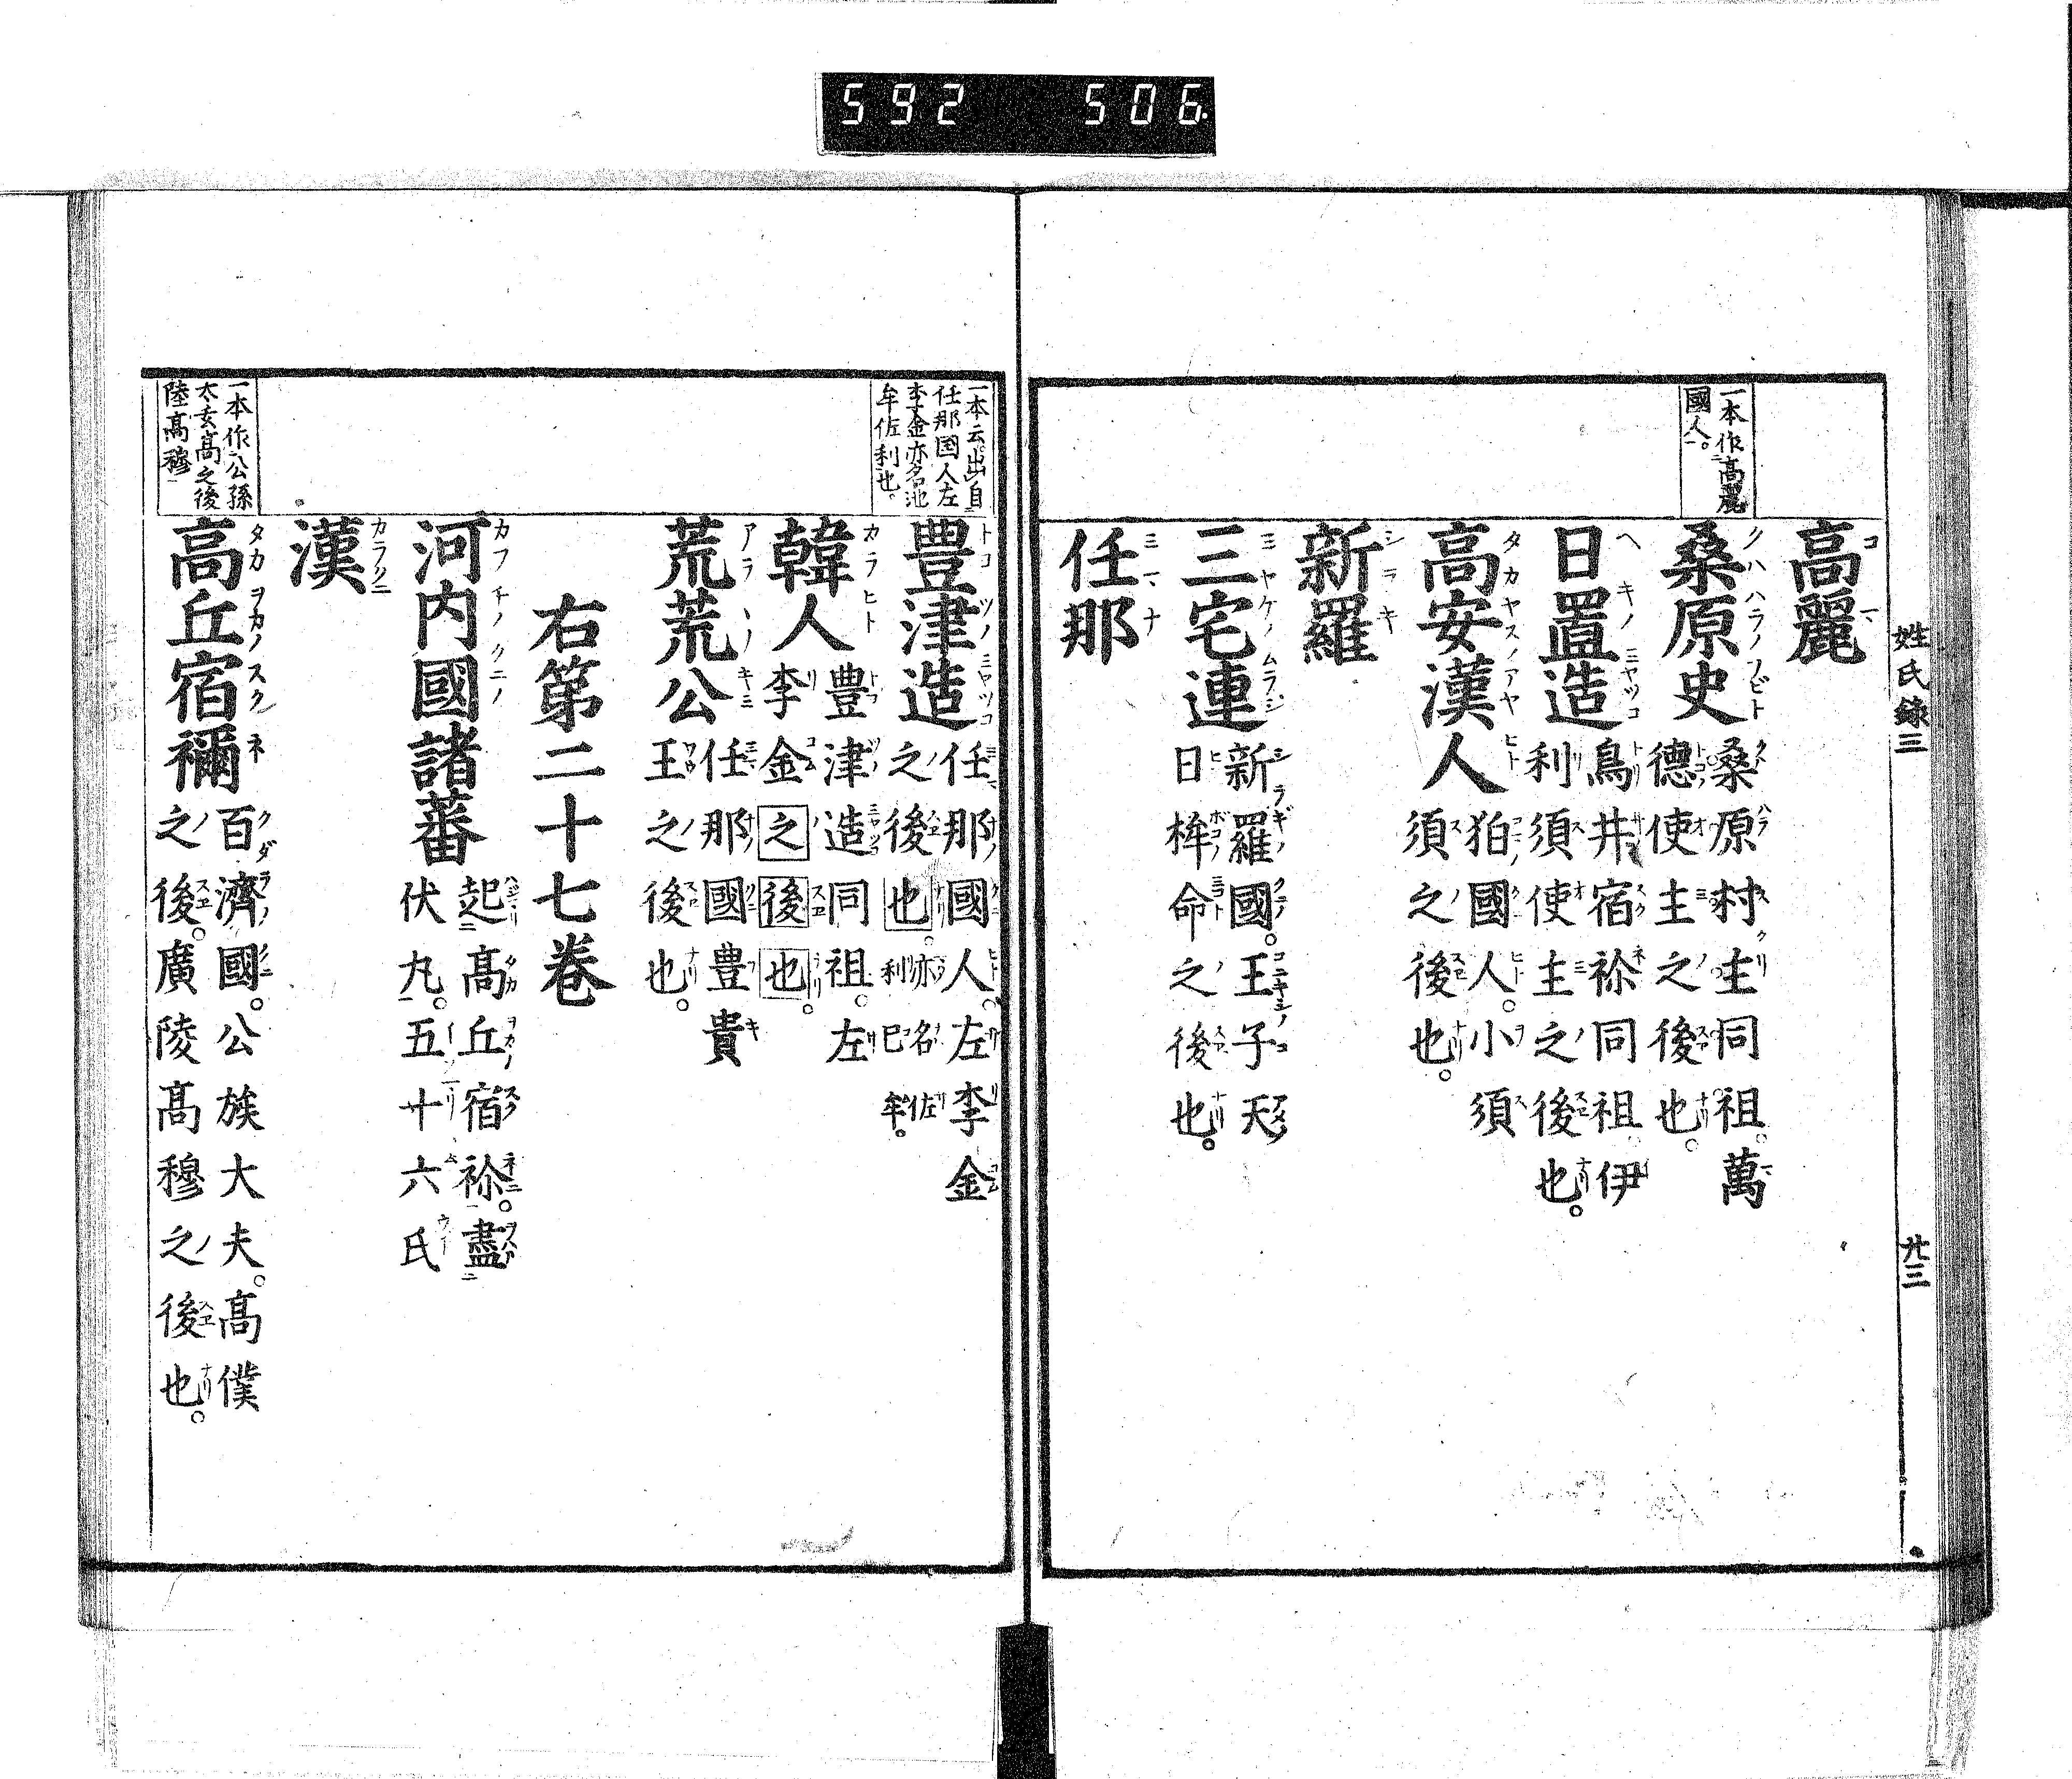 592 506
姓氏錄三
廿三
一本作高麗
國人。
高麗
桑原史
桑原村主同祖。萬
德使主之後也。
日置造
鳥井宿祢同祖。伊
利須使主之後也。
高安漢人
狛國人。小須
須之後也。
新羅
三宅連
新羅國。王子天
日桙命之後也。
任那
一本云。出自
任那国人左
李金亦名池
牟佐利也。
豊津造
任那國人。左李金
之後也。亦名佐
利巳牟。
韓人
豊津造同祖。左
李金之後也。
荒荒公
任那國豊貴
王之後也。
右第二十七巻
河内國諸蕃
起高丘宿祢。盡
伏丸。五十六氏
漢
一本作公孫
大夫高之後
陸高穆
高丘宿禰
百濟國。公族大夫。高僕
之後。廣陵高穆之後也。